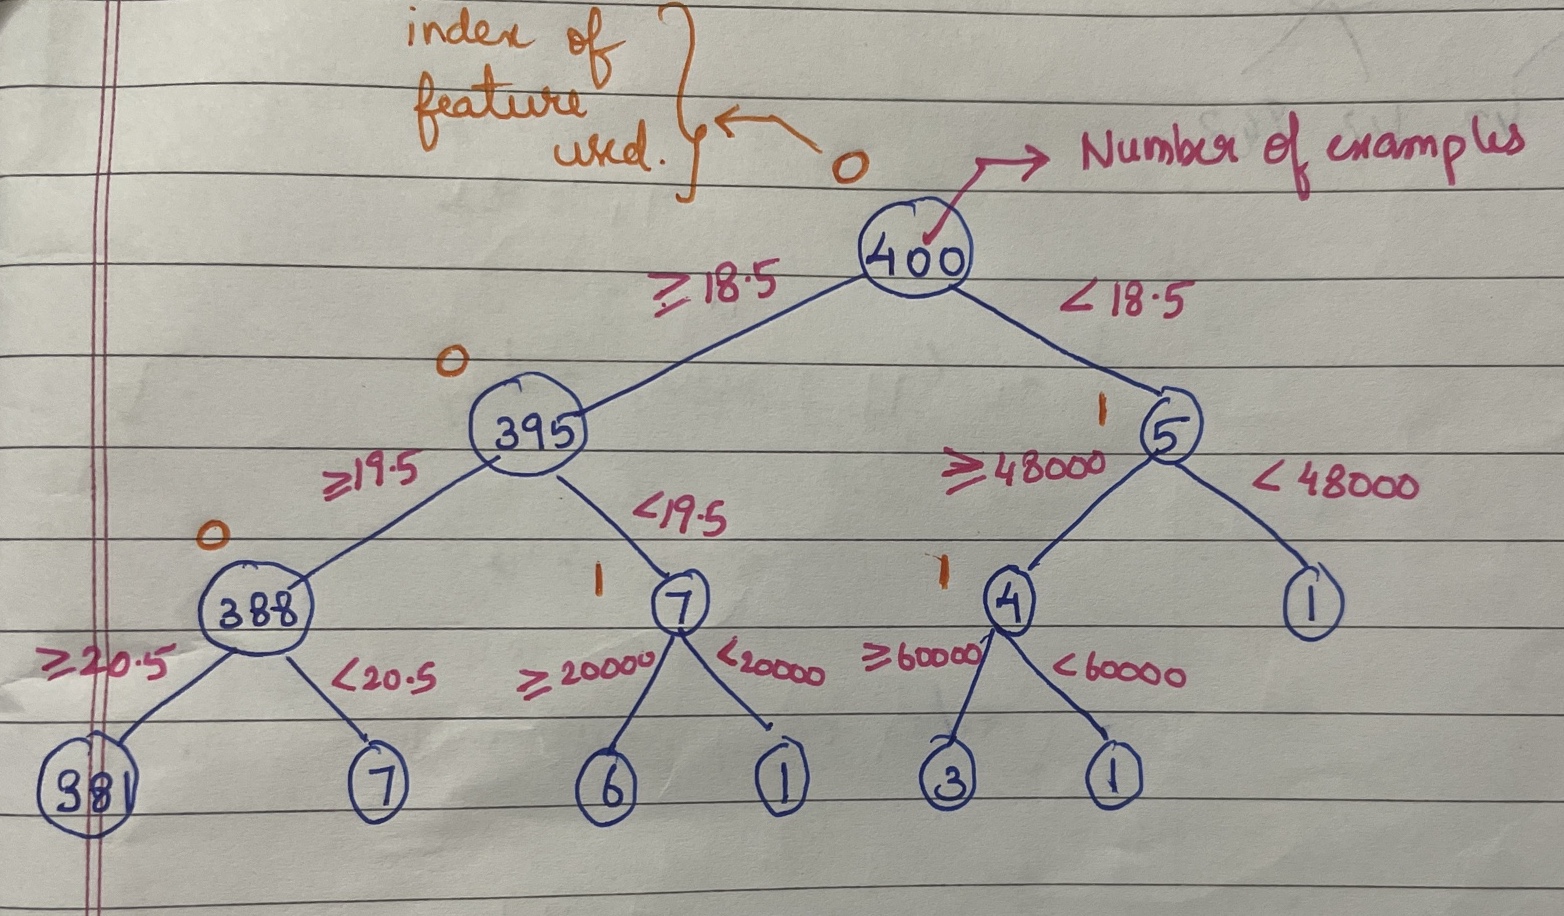 index of
feature
used.
0
Number of examples
400
≥18.5
<18.5
0
395
1
5
≥19.5
<19.5
≥48000
<48000
0
388
1
7
1
4
1
≥20.5
<20.5
≥20000
<20000
≥60000
<60000
381
7
6
1
3
1